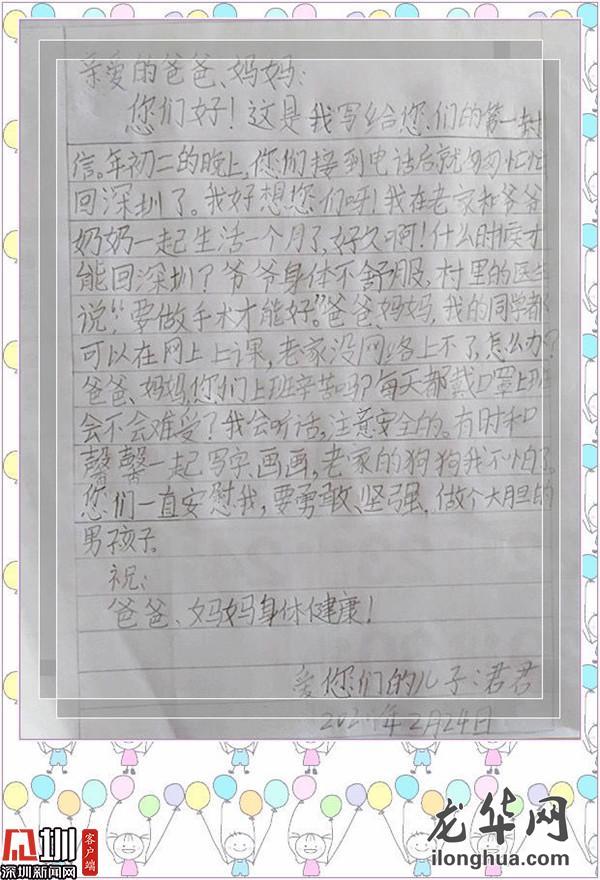 亲爱的爸爸、妈妈:
您们好!这是我写给您们的第一封
信。年初二的晚上,你们接到电话后就匆匆忙忙
回深圳了。我好想您们呀!我在老家和爷爷
奶奶一起生活一个月了,好久啊!什么时候才
能回深圳?爷爷身体不舒服,村里的医生
说“要做手术才能好。”爸爸、妈妈,我的同学都
可以在网上上课,老家没网络上不了,怎么办?
爸爸、妈妈,你们上班辛苦吗?每天都戴口罩上班
会不会难受?我会听话,注意安全的。有时和
馨馨一起写字、画画,老家的狗狗我不怕了。
您们一直安慰我,要勇敢、坚强,做个大胆的
男孩子。
祝:
爸爸、妈妈身体健康!
爱您们的儿子:君君
2020年2月24日
深圳
客户端
深圳新闻网
龙华网
ilonghua.com